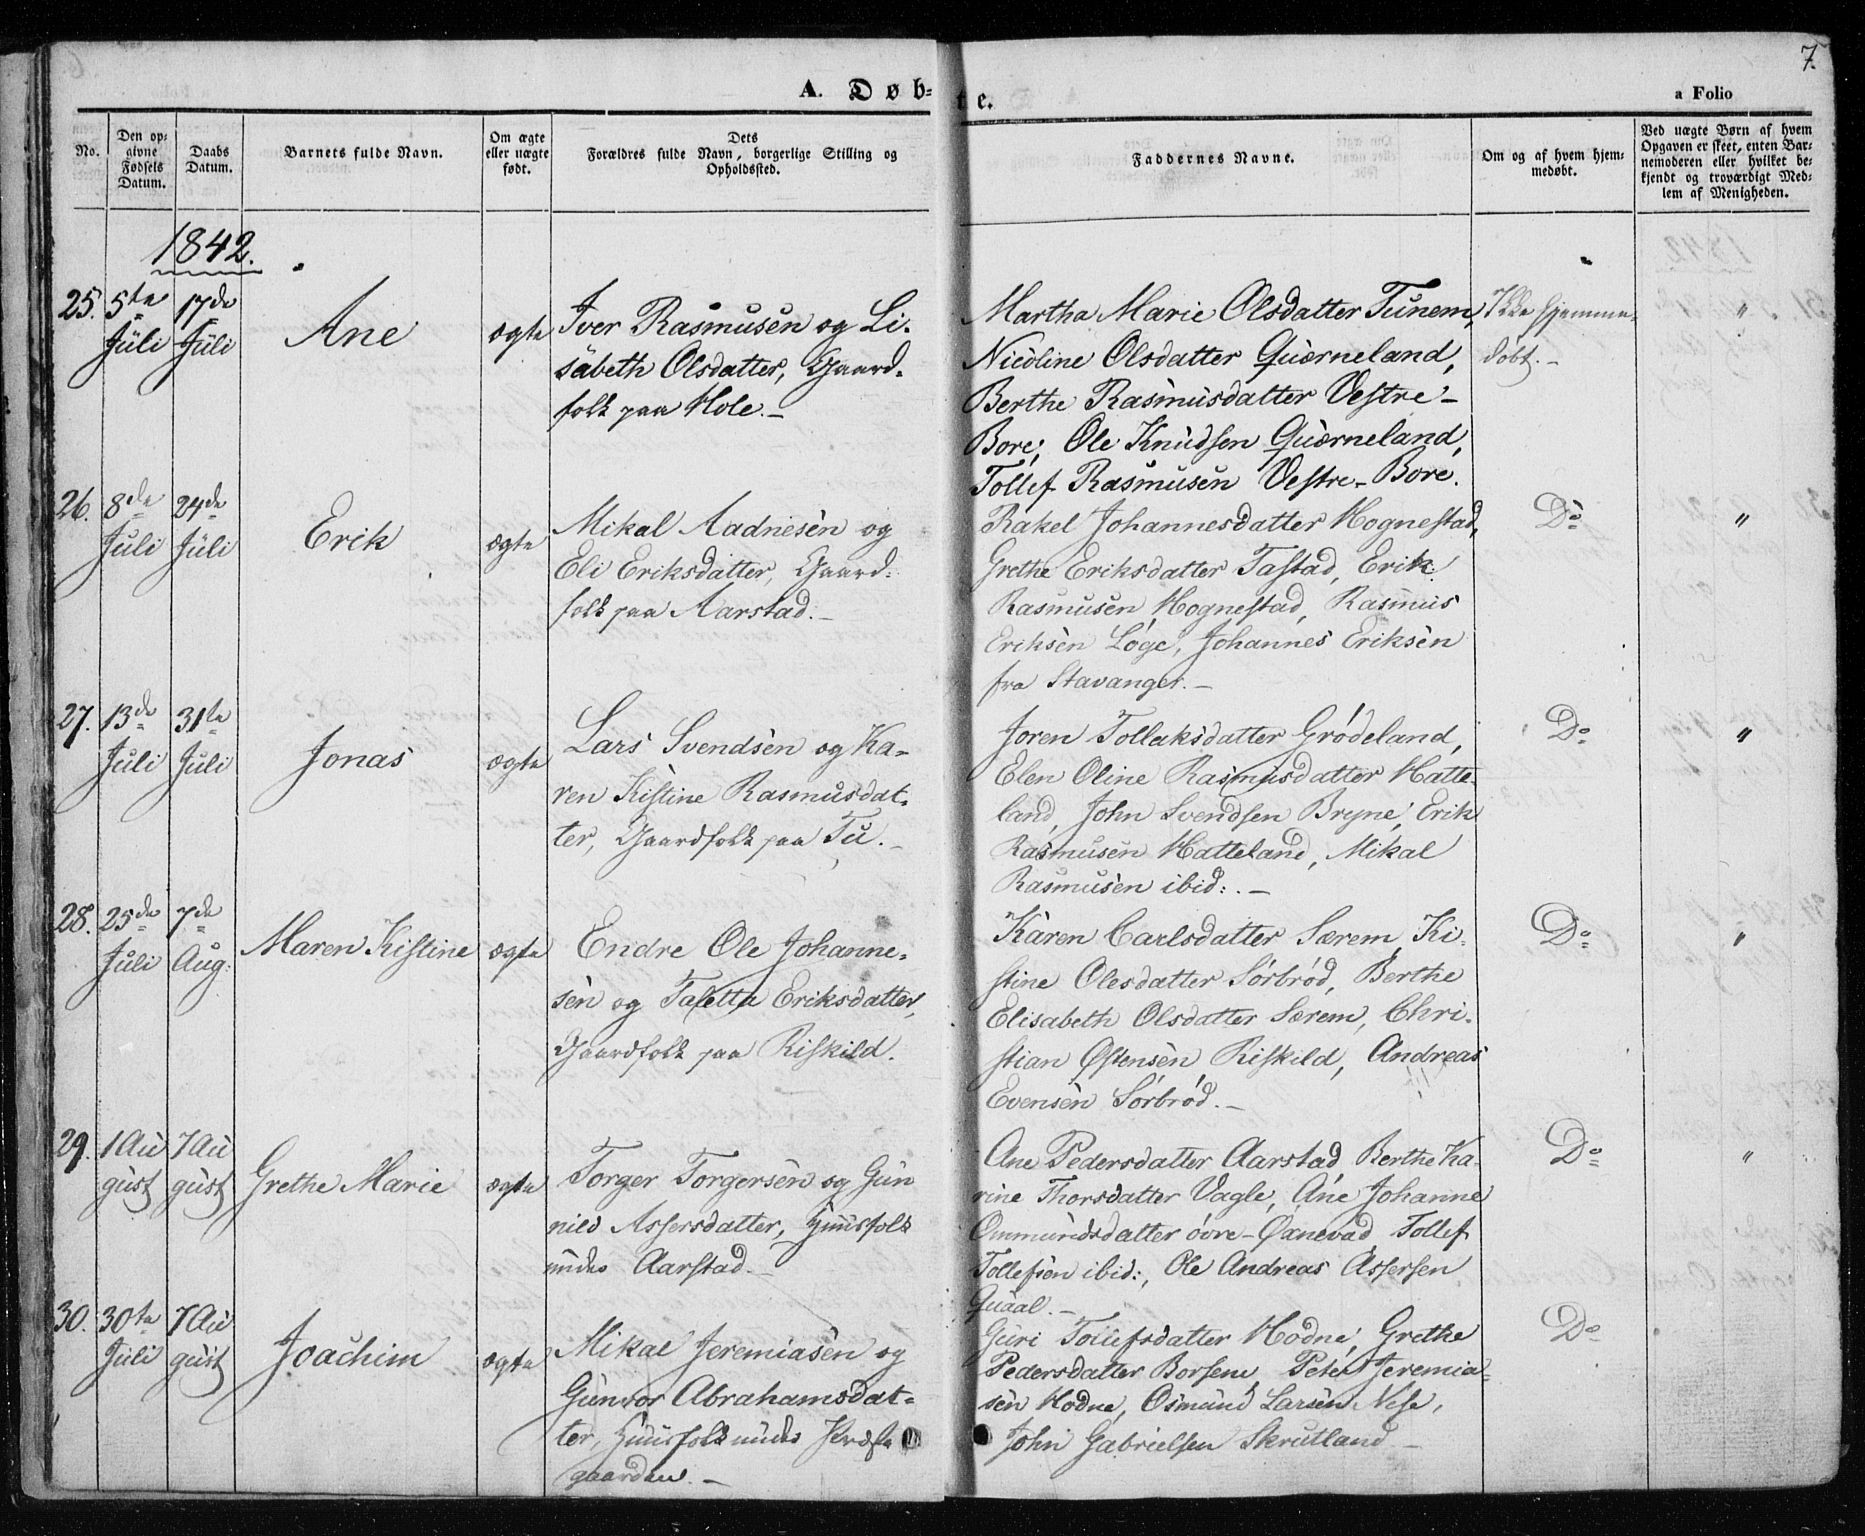 7.
A. Døb=
te.
a Folio
No.
Den op=
givne
Fødsels
Datum.
Daabs
Datum.
Barnets fulde Navn.
Om ægte
eller uægte
født.
Dets
Forældres fulde Navn, borgerlige Stilling og
Opholdssted.
Faddernes Navne.
Om og af hvem hjem=
medøbt.
Ved uægte Børn af hvem
Opgaven er skeet, enten Bar=
nemoderen eller hvilket be=
kjendt og troværdigt Med=
lem af Menigheden.
1842.
25. 5te Juli
17de Juli
Ane
ægte
Iver Rasmusen og Li-
sabeth Olsdatter, Gaard-
folk paa Hole.-
Martha Marie Olsdatter Tunem,
Nicoline Olsdatter Quærneland,
Berthe Rasmusdatter Vestre-
Bore, Ole Knudsen Quærneland,
Tollef Rasmusen Vestre-Bore.
Ikke hjemme-
døbt.-
"
26. 8de Juli
24de Juli
Erik
ægte
Mikal Aadnesen og
Eli Eriksdatter, Gaard-
folk paa Aarstad.-
Rakel Johannesdatter Hognestad,
Grethe Eriksdatter Tastad, Erik
Rasmusen Hognestad, Rasmus
Eriksen Løge, Johannes Eriksen
fra Stavanger.-
Do
"
27. 13de Juli
31te Juli
Jonas
ægte
Lars Svendsen og Ka-
ren Kistine Rasmusdat-
ter, Gaardfolk paa Tu.-
Joren Tollaksdatter Grødeland,
Elen Oline Rasmusdatter Hatte-
land, John Svendsen Bryne, Erik
Rasmusen Hatteland, Mikal
Rasmusen ibid:.-
Do
"
28. 25de Juli
7de Aug:
Maren Kistine
ægte
Endre Ole Johanne-
sen og Taletta Eriksdatter,
Gaardfolk paa Riskild.
Karen Carlsdatter Særem, Ki-
stine Olesdatter Sørbrød, Berthe
Elisabeth Olsdatter Særem, Chri-
stian Østensen Riskild, Andreas
Evensen Sørbrød.-
Do
"
29. 1 August
7 August
Grethe Marie
ægte
Torger Torgersen og Gun
nild Assersdatter, Huusfolk
under Aarstad.-
Ane Pedersdatter Aarstad, Berthe Ka-
rine Thorsdatter Vagle, Ane Johanne
Ommundsdatter øvre-Øxnevad Tollef
Tollefsen ibid:, Ole Andreas Assersen
Quaal.-
Do
"
30. 30te Juli
7 August
Joachim
ægte
Mikal Jeremiasen og
Gunvor Abrahamsdat-
ter, Huusfolk under Præste
gaarden.-
Guri Tollefsdatter Hodne, Grethe
Pedersdatter Borsem, Peter Jeremia-
sen Hodne, Osmund Larsen Nese,
John Gabrielsen Skrutland.-
Do